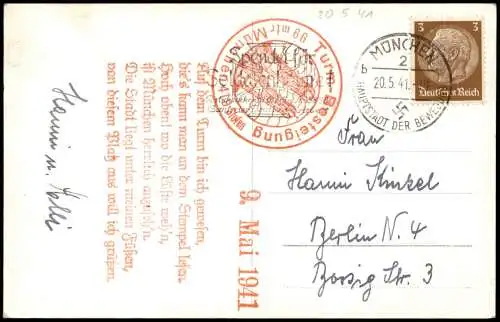 20 5 41
Turm Besteigung
99 mtr
MÜNCHEN
2
b
20.5.41.
HAUPTSTADT DER BEWEGUNG
3
3
Deutsches Reich
Auf dem Turm bin ich gewesen,
die's kann man an dem Stempel lesen.
Hoch oben wo die Lüfte weh'n,
ist München herrlich anzuseh'n.
Die Stadt liegt unter meinen Füßen,
von diesem Platz aus will ich grüßen.
9. Mai 1941
Hanni u.
Frau
Hanni Kinkel
Berlin N. 4
Borsig Str. 3